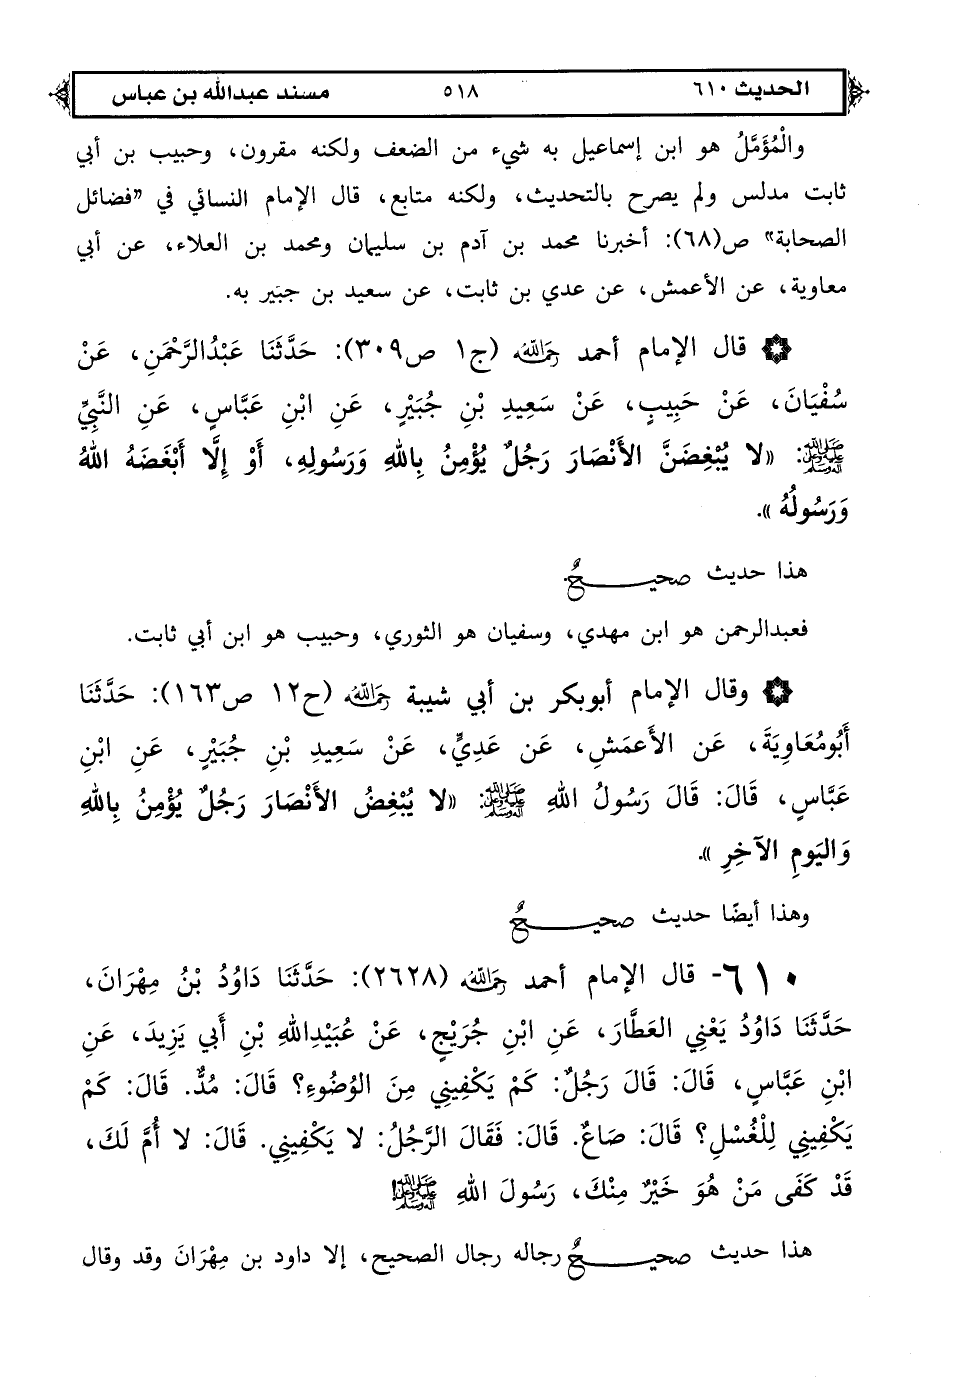 الحديث ٦١٠ ٥١٨ مسند عبدالله بن عباس
والْمُؤَمَّلُ هو ابن إسماعيل به شيء من الضعف ولكنه مقرون، وحبيب بن أبي
ثابت مدلس ولم يصرح بالتحديث، ولكنه متابع، قال الإمام النسائي في «فضائل
الصحابة» ص(٦٨): أخبرنا محمد بن آدم بن سليمان ومحمد بن العلاء، عن أبي
معاوية، عن الأعمش، عن عدي بن ثابت، عن سعيد بن جبَير به.
۞ قال الإمام أحمد رحمه الله (ج١ ص٣٠٩): حَدَّثَنَا عَبْدُالرَّحْمَنِ، عَنْ
سُفْيَانَ، عَنْ حَبِيبٍ، عَنْ سَعِيدِ بْنِ جُبَيْرٍ، عَنِ ابْنِ عَبَّاسٍ، عَنِ النَّبِيِّ
ﷺ: «لا يُبْغِضَنَّ الأَنْصَارَ رَجُلٌ يُؤْمِنُ بِاللهِ وَرَسُولِهِ، أَوْ إِلَّا أَبْغَضَهُ اللهُ
وَرَسُولُهُ».
هذا حديث صحيحٌ
فعبدالرحمن هو ابن مهدي، وسفيان هو الثوري، وحبيب هو ابن أبي ثابت.
۞ وقال الإمام أبوبكر بن أبي شيبة رحمه الله (ح١٢ ص١٦٣): حَدَّثَنَا
أَبُومُعَاوِيَةَ، عَنِ الأَعمَشِ، عَن عَدِيٍّ، عَنْ سَعِيدِ بْنِ جُبَيْرٍ، عَنِ ابْنِ
عَبَّاسٍ، قَالَ: قَالَ رَسُولُ اللهِ ﷺ: «لا يُبْغِضُ الأَنْصَارَ رَجُلٌ يُؤْمِنُ بِاللهِ
وَاليَومِ الآخِرِ».
وهذا أيضًا حديث صحيحٌ
٦١٠- قال الإمام أحمد رحمه الله (٢٦٢٨): حَدَّثَنَا دَاوُدُ بْنُ مِهْرَانَ،
حَدَّثَنَا دَاوُدُ يَعْنِي العَطَّارَ، عَنِ ابْنِ جُرَيْجٍ، عَنْ عُبَيْدِاللهِ بْنِ أَبي يَزِيدَ، عَنِ
ابْنِ عَبَّاسٍ، قَالَ: قَالَ رَجُلٌ: كَمْ يَكْفِينِي مِنَ الوُضُوءِ؟ قَالَ: مُدٌّ. قَالَ: كَمْ
يَكْفِينِي لِلْغُسْلِ؟ قَالَ: صَاعٌ. قَالَ: فَقَالَ الرَّجُلُ: لا يَكْفِينِي. قَالَ: لا أُمَّ لَكَ،
قَدْ كَفَى مَنْ هُوَ خَيْرٌ مِنْكَ، رَسُولَ اللهِ ﷺ!
هذا حديث صحيحٌ رجاله رجال الصحيح، إلا داود بن مِهْرَانَ وقد وقال